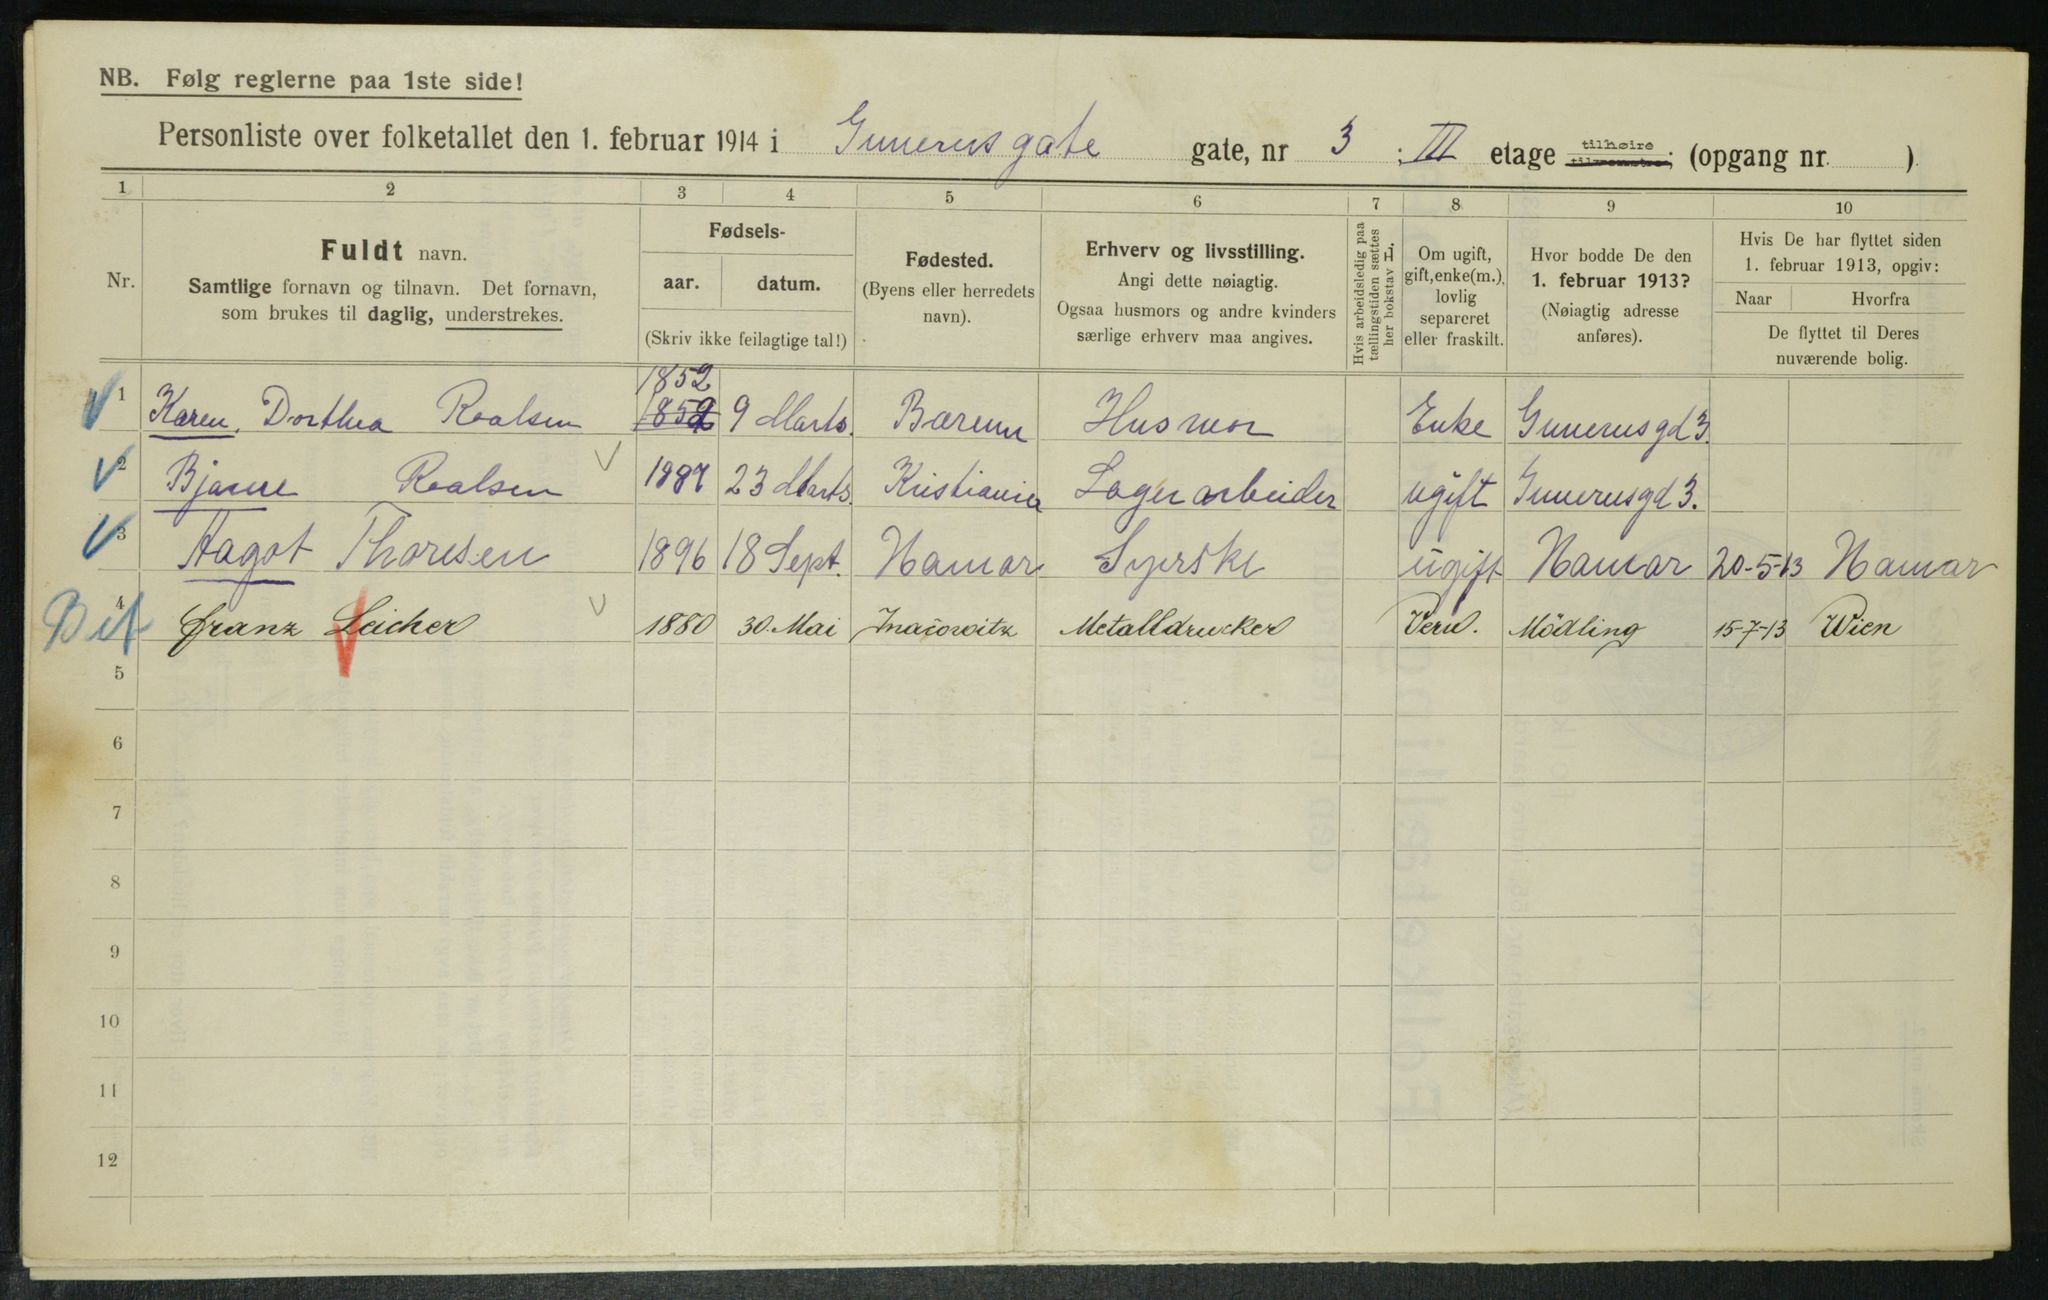 NB. Følg reglerne paa 1ste side!
Personliste over folketallet den 1. februar 1914 i Gunerusgate gate, nr 3 ; III etage tilhøire tilvenstre; (opgang nr. )
1 2 3 4 5 6 7 8 9 10
Nr.
Fuldt navn.
Samtlige fornavn og tilnavn. Det fornavn,
som brukes til daglig, understrekes.
Fødsels-
aar. datum.
(Skriv ikke feilagtige tal!)
Fødested.
(Byens eller herredets
navn).
Erhverv og livsstilling.
Angi dette nøiagtig.
Ogsaa husmors og andre kvinders
særlige erhverv maa angives.
Hvis arbeidsledig paa
tællingstiden sættes
her bokstav L.
Om ugift,
gift, enke(m.),
lovlig
separeret
eller fraskilt.
Hvor bodde De den
1. februar 1913?
(Nøiagtig adresse
anføres).
Hvis De har flyttet siden
1. februar 1913, opgiv:
Naar Hvorfra
De flyttet til Deres
nuværende bolig.
1852
1 Karen, Dorthea Roalsen 1852 9 Marts. Bærum Husmor Enke Gunerusgd 3.
2 Bjarne Roalsen 1887 23 Marts. Kristiania Lagerarbeider ugift Gunerusgd 3.
3 Aagot Thoresen 1896 18 Sept. Hamar Syerske ugift Hamar 20-5-13 Hamar
4 Franz Leicher 1880 30. Mai Inačovitz Metalldrucker Verw. Mödling 15-7-13 Wien
5
6
7
8
9
10
11
12